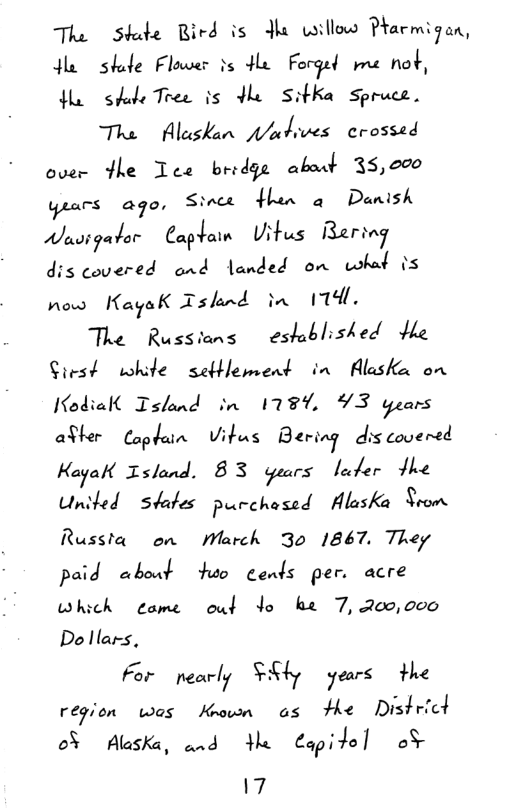 The State Bird is the willow Ptarmigan,
the state Flower is the Forget me not,
the state Tree is the Sitka Spruce.
The Alaskan Natives crossed
over the Ice bridge about 35,000
years ago. Since then a Danish
Navigator Captain Vitus Bering
discovered and landed on what is
now Kayak Island in 1741.
The Russians established the
first white settlement in Alaska on
Kodiak Island in 1784. 43 years
after Captain Vitus Bering discovered
Kayak Island. 83 years later the
United States purchased Alaska from
Russia on March 30 1867. They
paid about two cents per. acre
which came out to be 7,200,000
Dollars.
For nearly fifty years the
region was known as the District
of Alaska, and the Capitol of
17